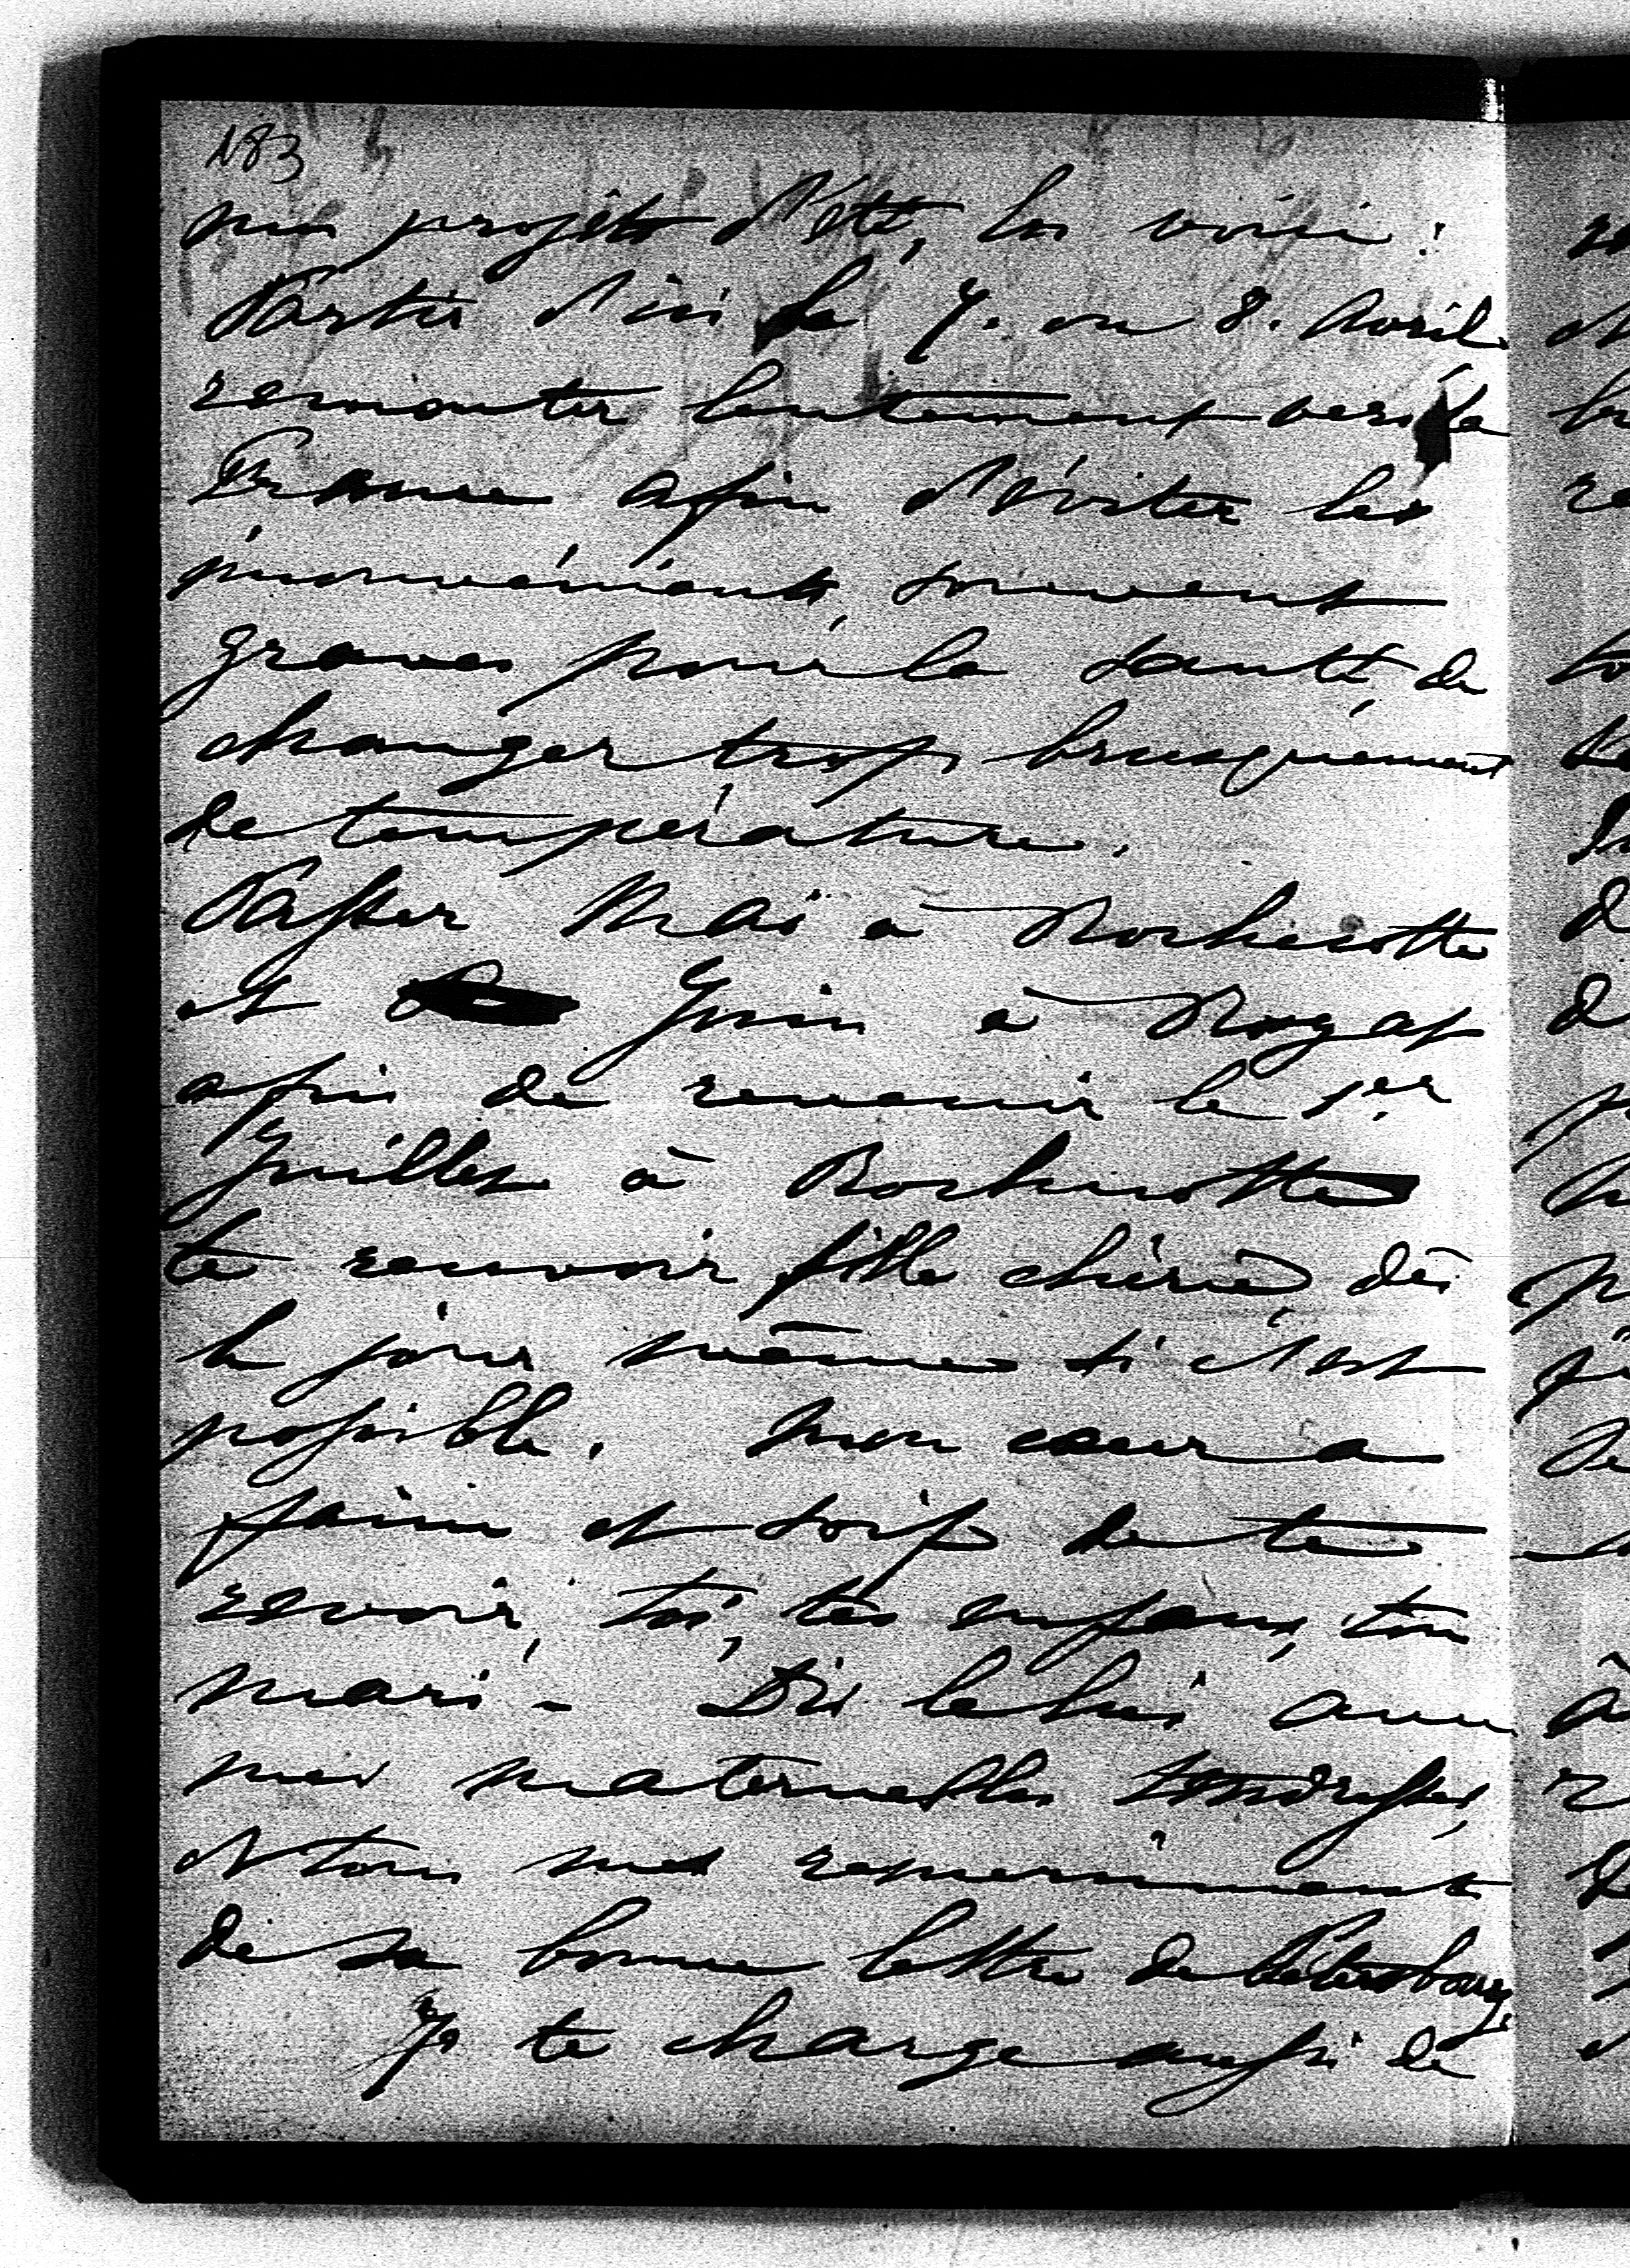 183
mes projets d'été, les voici:
Partir d'ici le 7. ou 8. Avril.
remonter lentement vers la
France afin d'éviter les
inconvénients, souvent
graves pour la santé, de
changer trop brusquement
de température.
Passer Mai à Rochecotte
et Juin à Royat
afin de revenir le 1er
Juillet à Rochecotte
te revoir fille chérie dès
le jour même si c'est
possible. Mon cœur a
faim et soif de te
revoir, toi, tes enfans, ton
mari - Dis le lui avec
mes maternelles tendresses,
et tous mes remerciements
de sa bonne lettre de Pétersbourg.
Je te charge aussi de